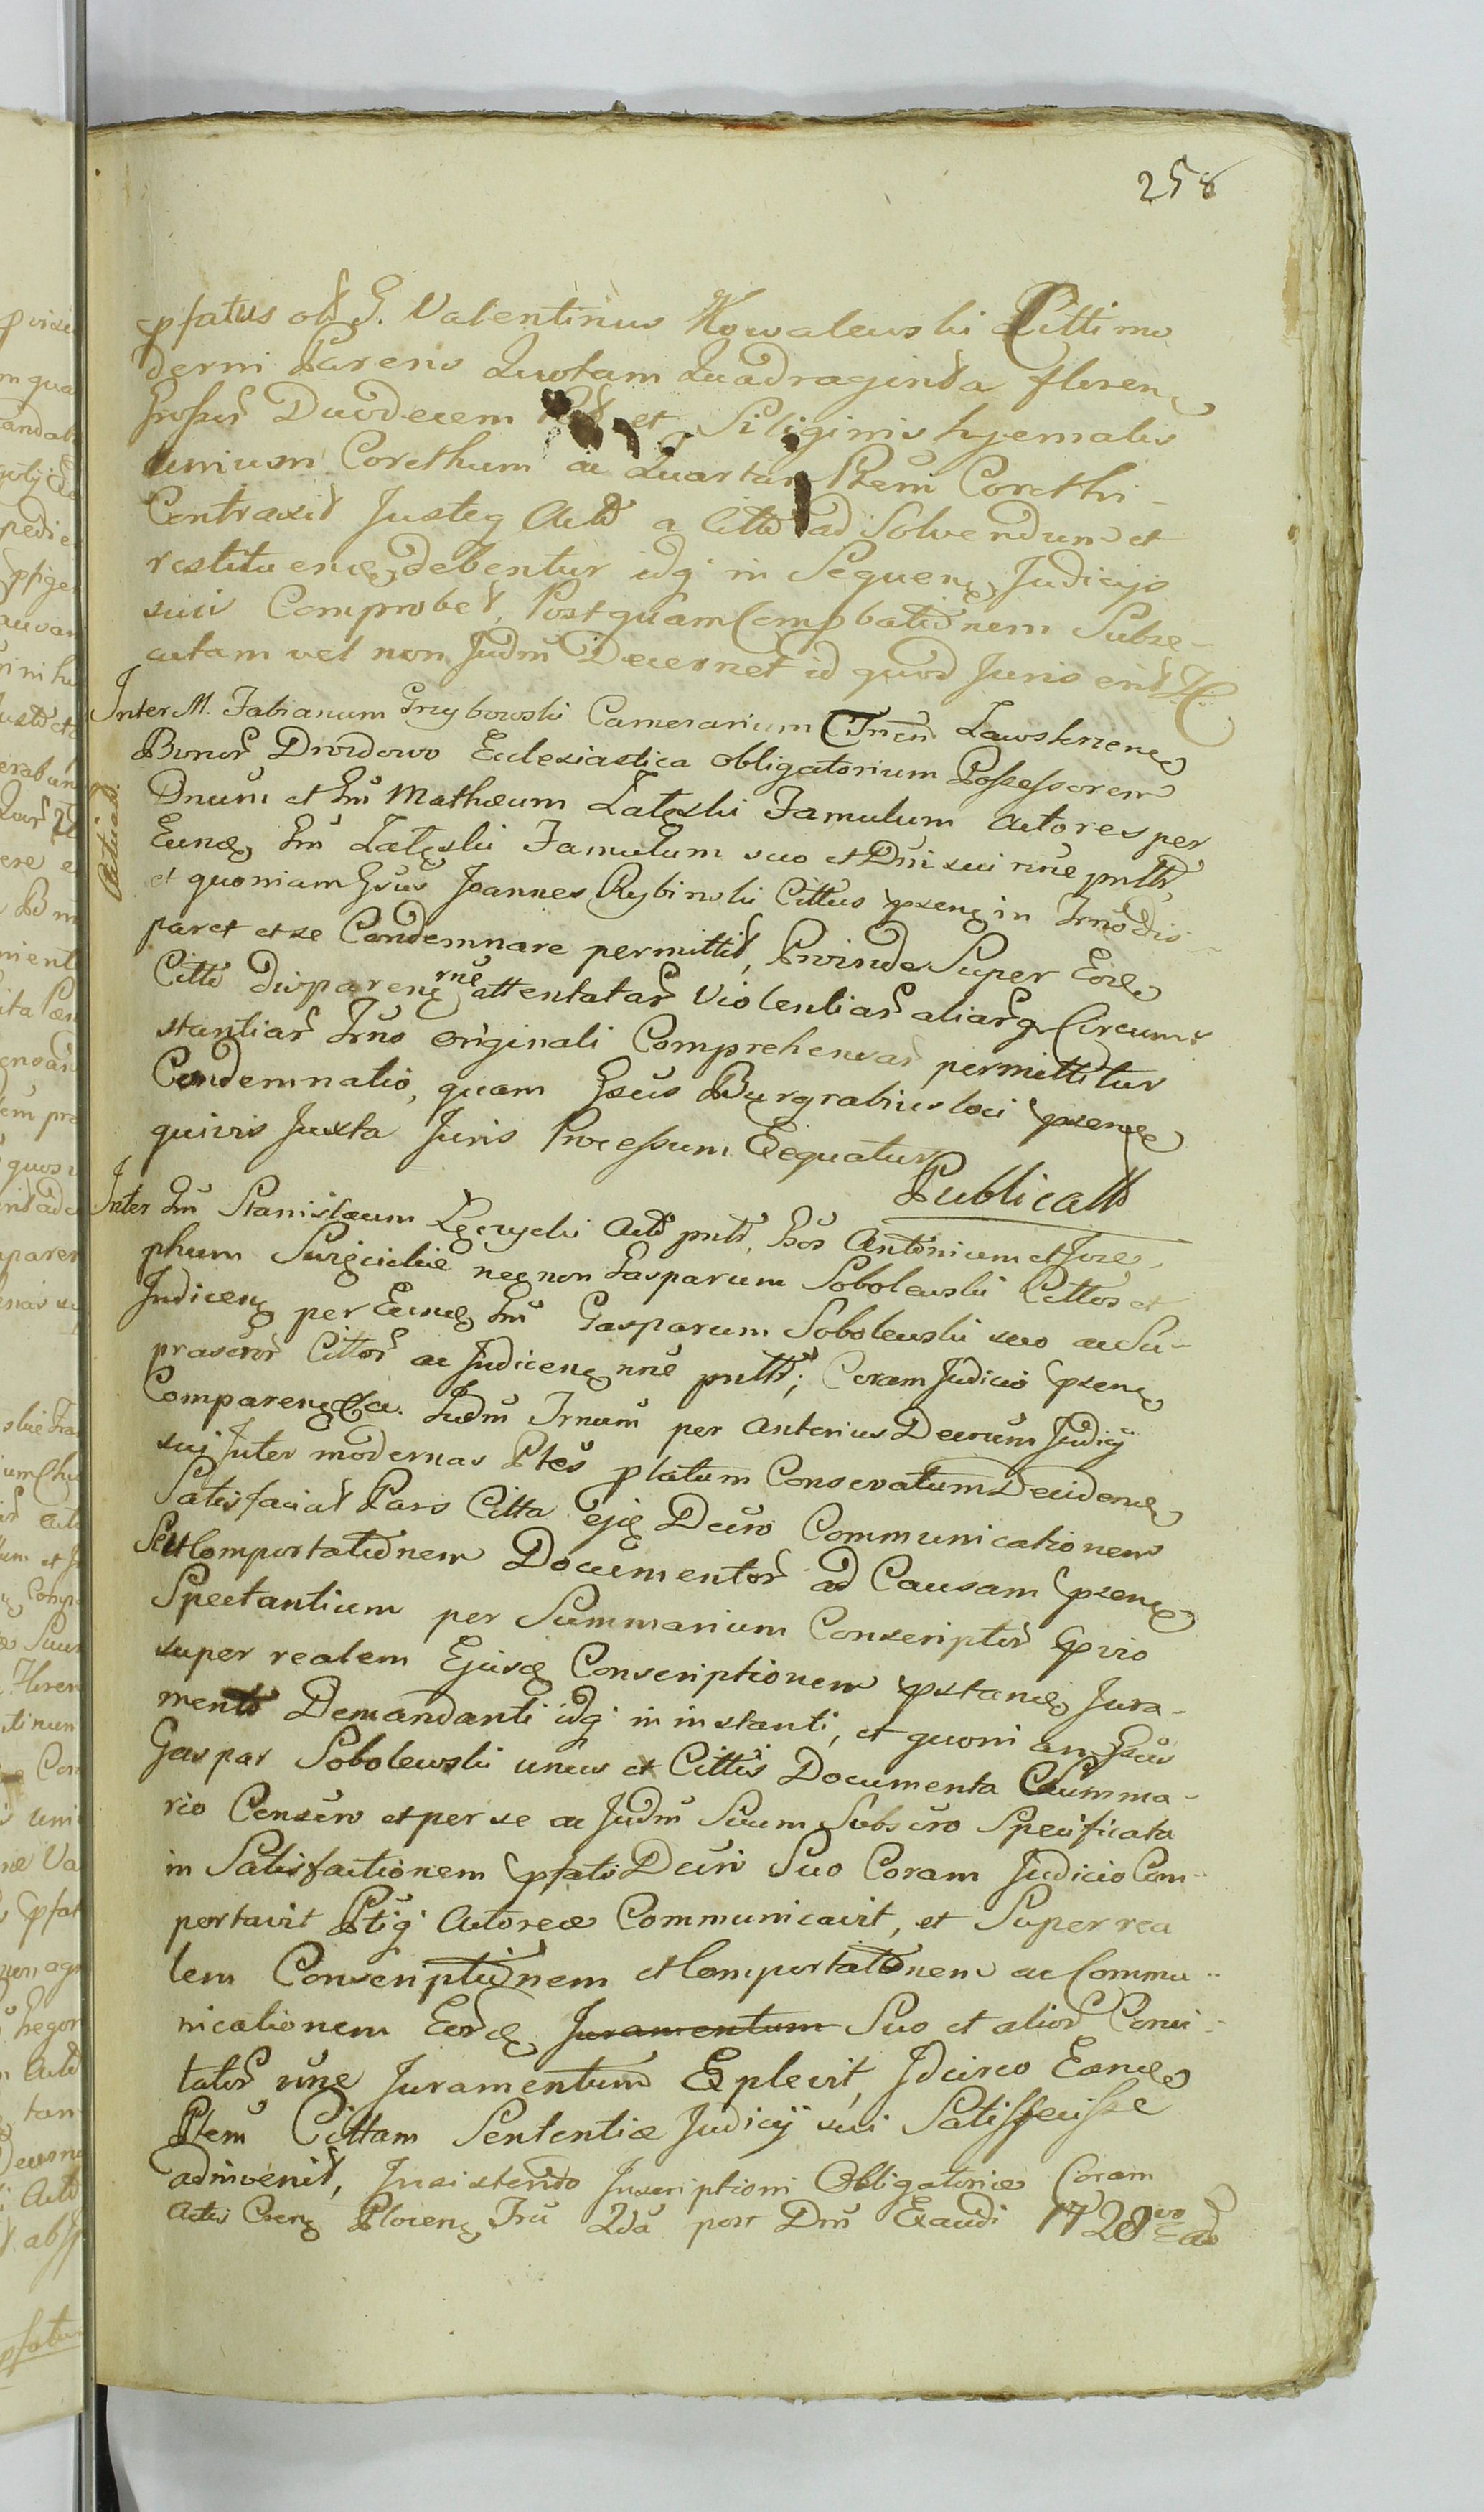 258
pfatus olt G. Valentinus Kowalewski Citti mo
derni Parens Quotam Quadraginta floren
Grossor Duodecem et Siliginis hyemalis
unium Corethum ac Quartam Ptem Corethi
Contraxit Justeq Actt a Citto ad Solvendum et
restituend debentur idq in Sequen Judicijs
suis Comprobet, Postquam Compbationem Subse-
cutam vel non Judm Decernet id quod Juris erit
Inter M. Fabianum Grzybowski Camerarium Trren Zawskrzenen
Bonor Drozdowo Ecclesiastica obligatorium Possessorem
Dnum et Gm Mathæum Zateski Famulum Actores per
Eund Gm Zateski Famulum suo et Dni sui nne pntto,
et quoniam Gsus Joannes Rybinski Cittus psens in Trno dis-
paret et se Condemnare permittit, Proinde Super Eod
Citto disparen rne attentatar Violentiar aliarq Circum-
stantiar Trno Originali Comprehensar permittitur
Condemnatio, quam Gsus Burgrabius loci psens
quivis Juxta Juris Processum Exequatur
Publicatt
Inter Gm Stanislaum Łęczycki Actt pntt, Gsos Antonium et Joze-
phum Swięcickie necnon Gasparum Sobolewski Cittos et
Judicen per Eund Gm Gasparum Sobolewski suo ac Su-
prascror Cittor ac Judicen nne pntto; Coram Judicio psen
Comparen &a. Judm Trnum per Anterius Decrum Judicij
sui Inter modernas Ptes platum Conservatum Deciden
Satisfaciat Pars Citta ejq Decro Communicationem
Seu Comportationem Documentor ad Causam psen
Spectantium per Summarium Conscriptor pvio
super realem Ejusd Conscriptionem pstand Jura-
mento Demandanti idq in instanti, et quoniam Gsus
Gaspar Sobolewski unus ex Cittis Documenta Summa-
rio Conscro et per se ac Judm Suum Subscro Specificata
in Satisfactionem pfati Decri Suo Coram Judicio Com-
portavit Ptiq Actoreæ Communicavit, et Super rea
lem Conscriptionem et Comportationem ac Commu-
nicationem Eord Juramentum Suo et alior Conci-
tator nne Juramentum Explevit, Idcirco Eand
Ptem Cittam Sententiæ Judicij sui Satisfecisse
adinvenit, Insistendo Inscriptioni Obligatoriæ Coram
Actis Cren Plocen Fria 2da post Dm Exaudi 1728vo